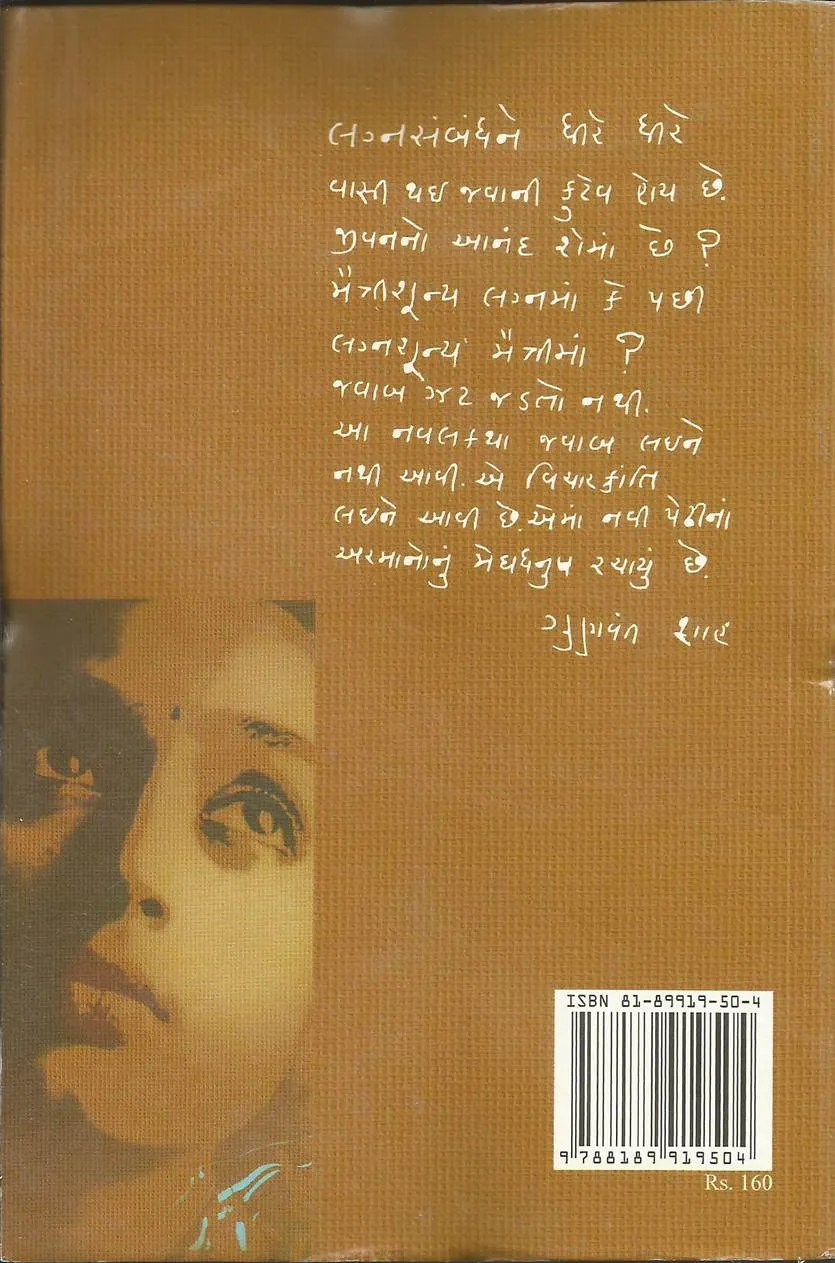 લગ્નસંબંધને ધીરે ધીરે
વાસી થઇ જવાની કુટેવ હોય છે.
જીવનનો આનંદ શેમાં છે ?
મૈત્રીશૂન્ય લગ્નમાં કે પછી
લગ્નશૂન્ય મૈત્રીમાં ?
જવાબ ઝટ જડતો નથી.
આ નવલકથા જવાબ લઇને
નથી આવી. એ વિચારક્રાંતિ
લઇને આવી છે. એમાં નવી પેઢીનાં
અરમાનોનું મેઘધનુષ રચાયું છે.
ગુણવંત શાહ
ISBN 81-89919-50-4
9 788189 919504
Rs. 160